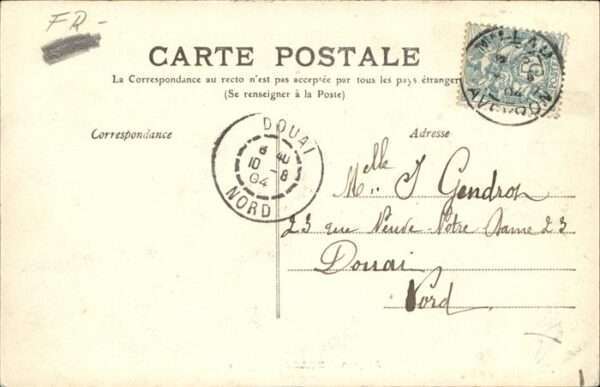 FR-
CARTE POSTALE
La Correspondance au recto n'est pas acceptée par tous les pays étranger
(Se renseigner à la Poste)
Correspondance
Adresse
MILLAU
AVEYRON
DOUAI
6 40
10 - 8
04
NORD
Melle J Gendron
23 rue Neuve-Notre Dame 23
Douai
Nord